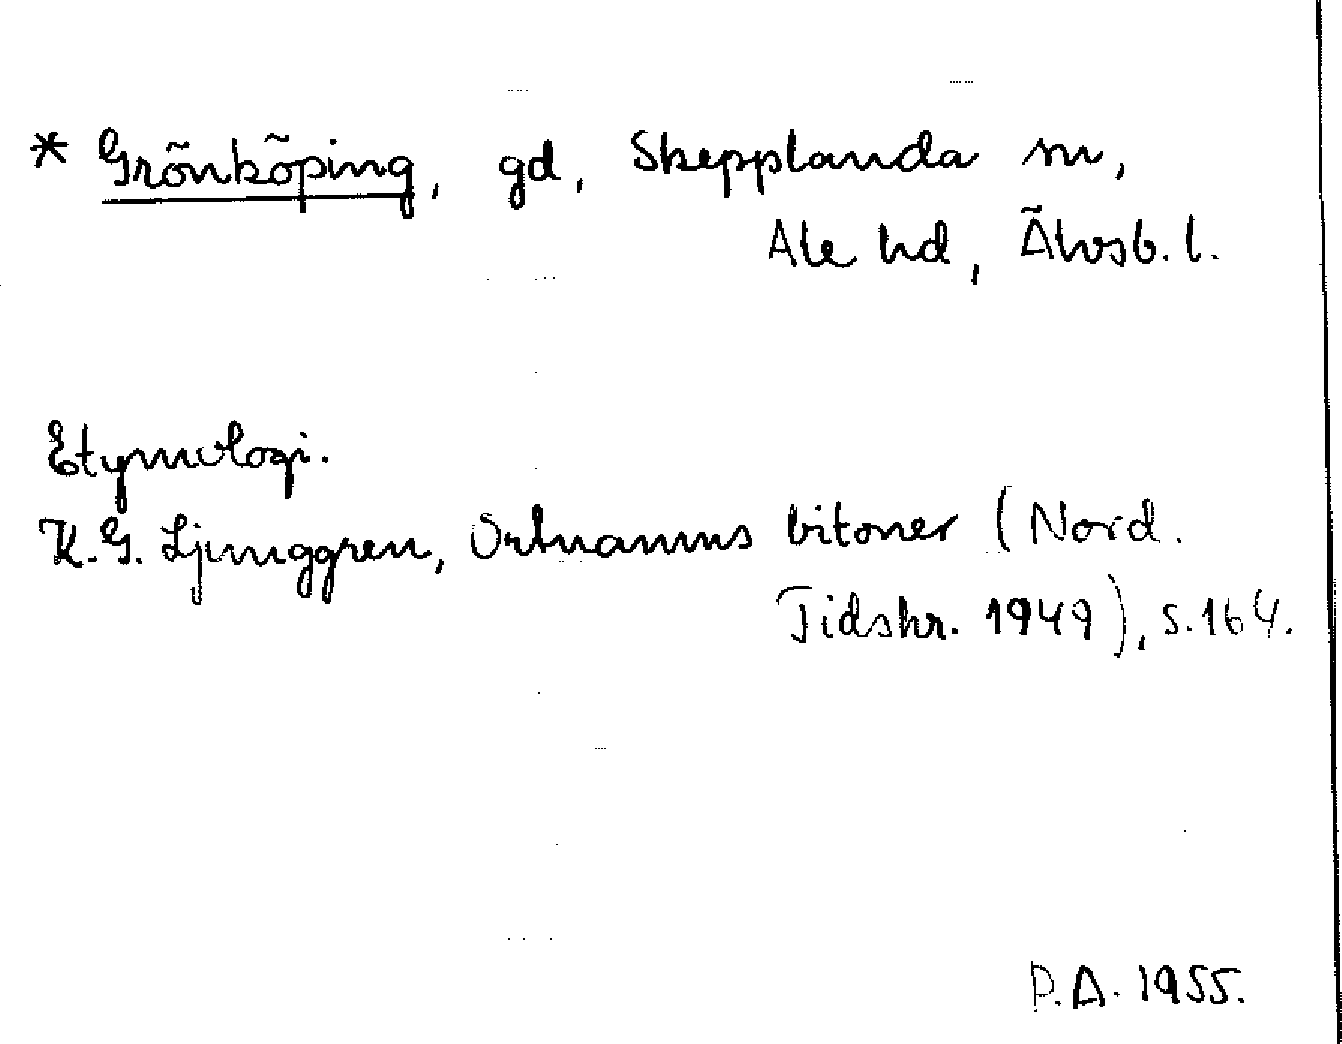 * Grönköping, gd, Skepplanda sn,
Ale hd, Älvsb. l.
Etymologi.
K. G. Ljunggren, Ortnamns bitoner (Nord.
Tidskr. 1949), s. 164.
P.A. 1955.